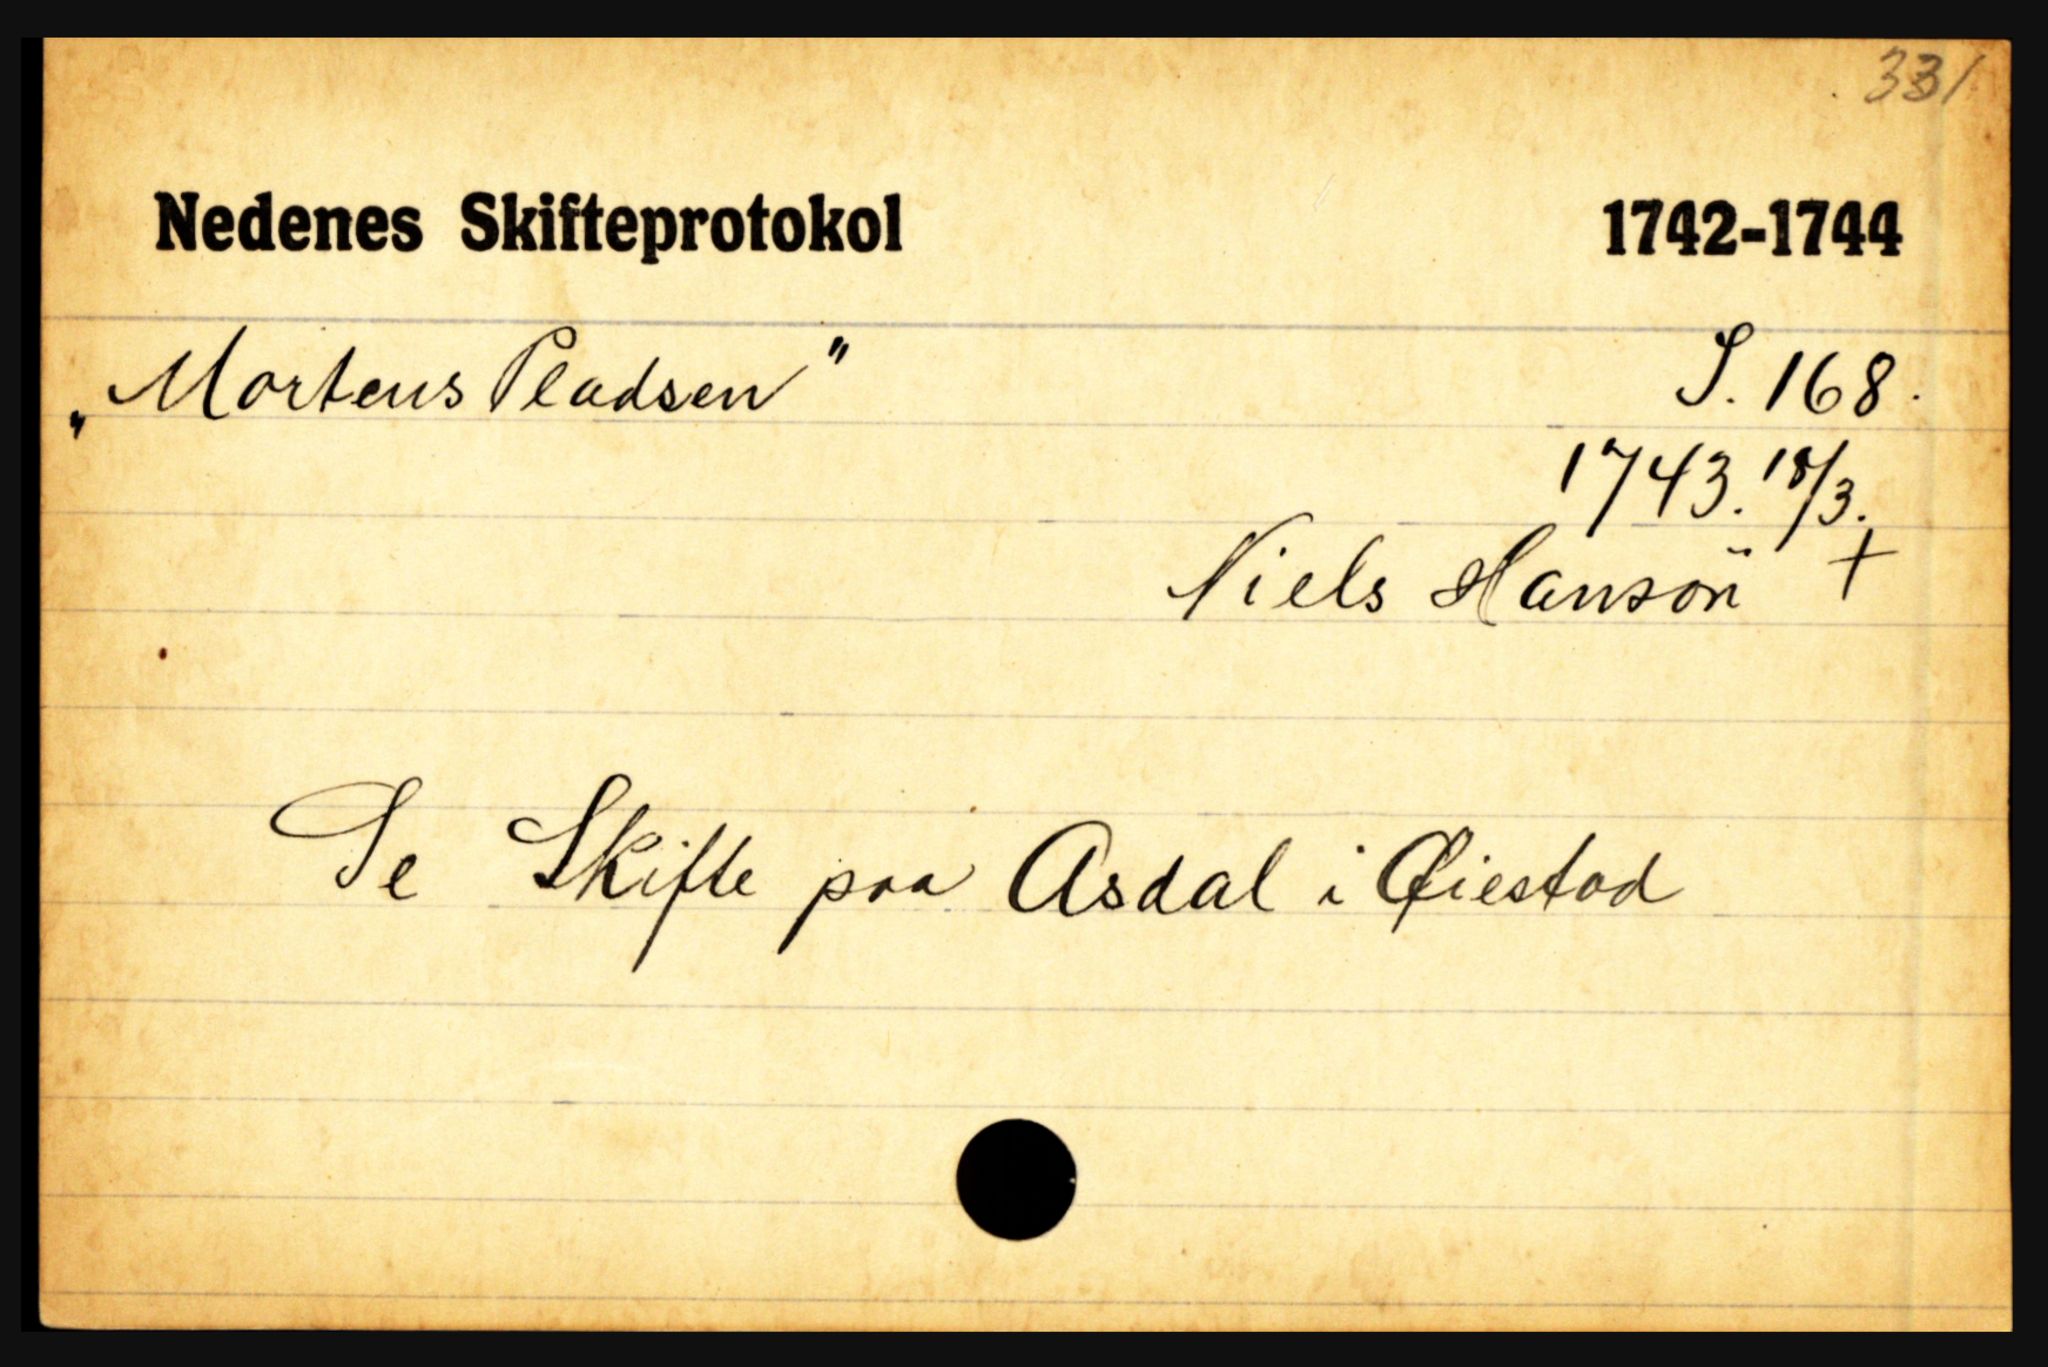 331
Nedenes Skifteprotokol 1742-1744
„Mortens Pladsen" S. 168.
1743. 18/3.
Niels Hansön +
Se Skifte paa Asdal i Øiestad